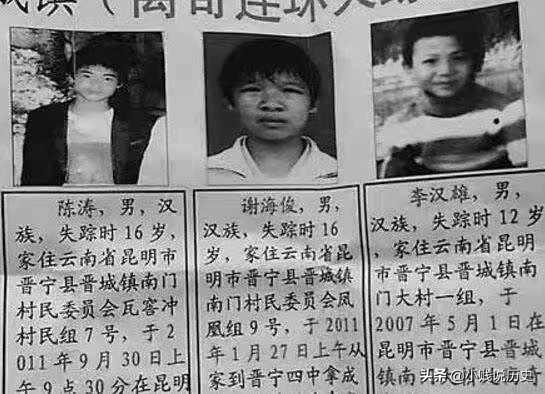 离奇连环失踪
陈涛，男，汉
族，失踪时 16 岁，
家住云南省昆明市
晋宁县晋城镇南门
村民委员会瓦窑冲
村民组 7 号，于 2
011 年 9 月 30 日上
午 9 点 30 分在昆明
谢海俊，男，
汉族，失踪时 16
岁，家住云南省昆
明市晋宁县晋城镇
南门村民委员会凤
凰组 9 号，于 2011
年 1 月 27 日上午从
家到晋宁四中拿成
李汉雄，男，
汉族，失踪时 12 岁
，家住云南省昆明
市晋宁县晋城镇南
门大村一组，于
2007 年 5 月 1 日在
昆明市晋宁县晋城
镇南
头条 @小贱说历史